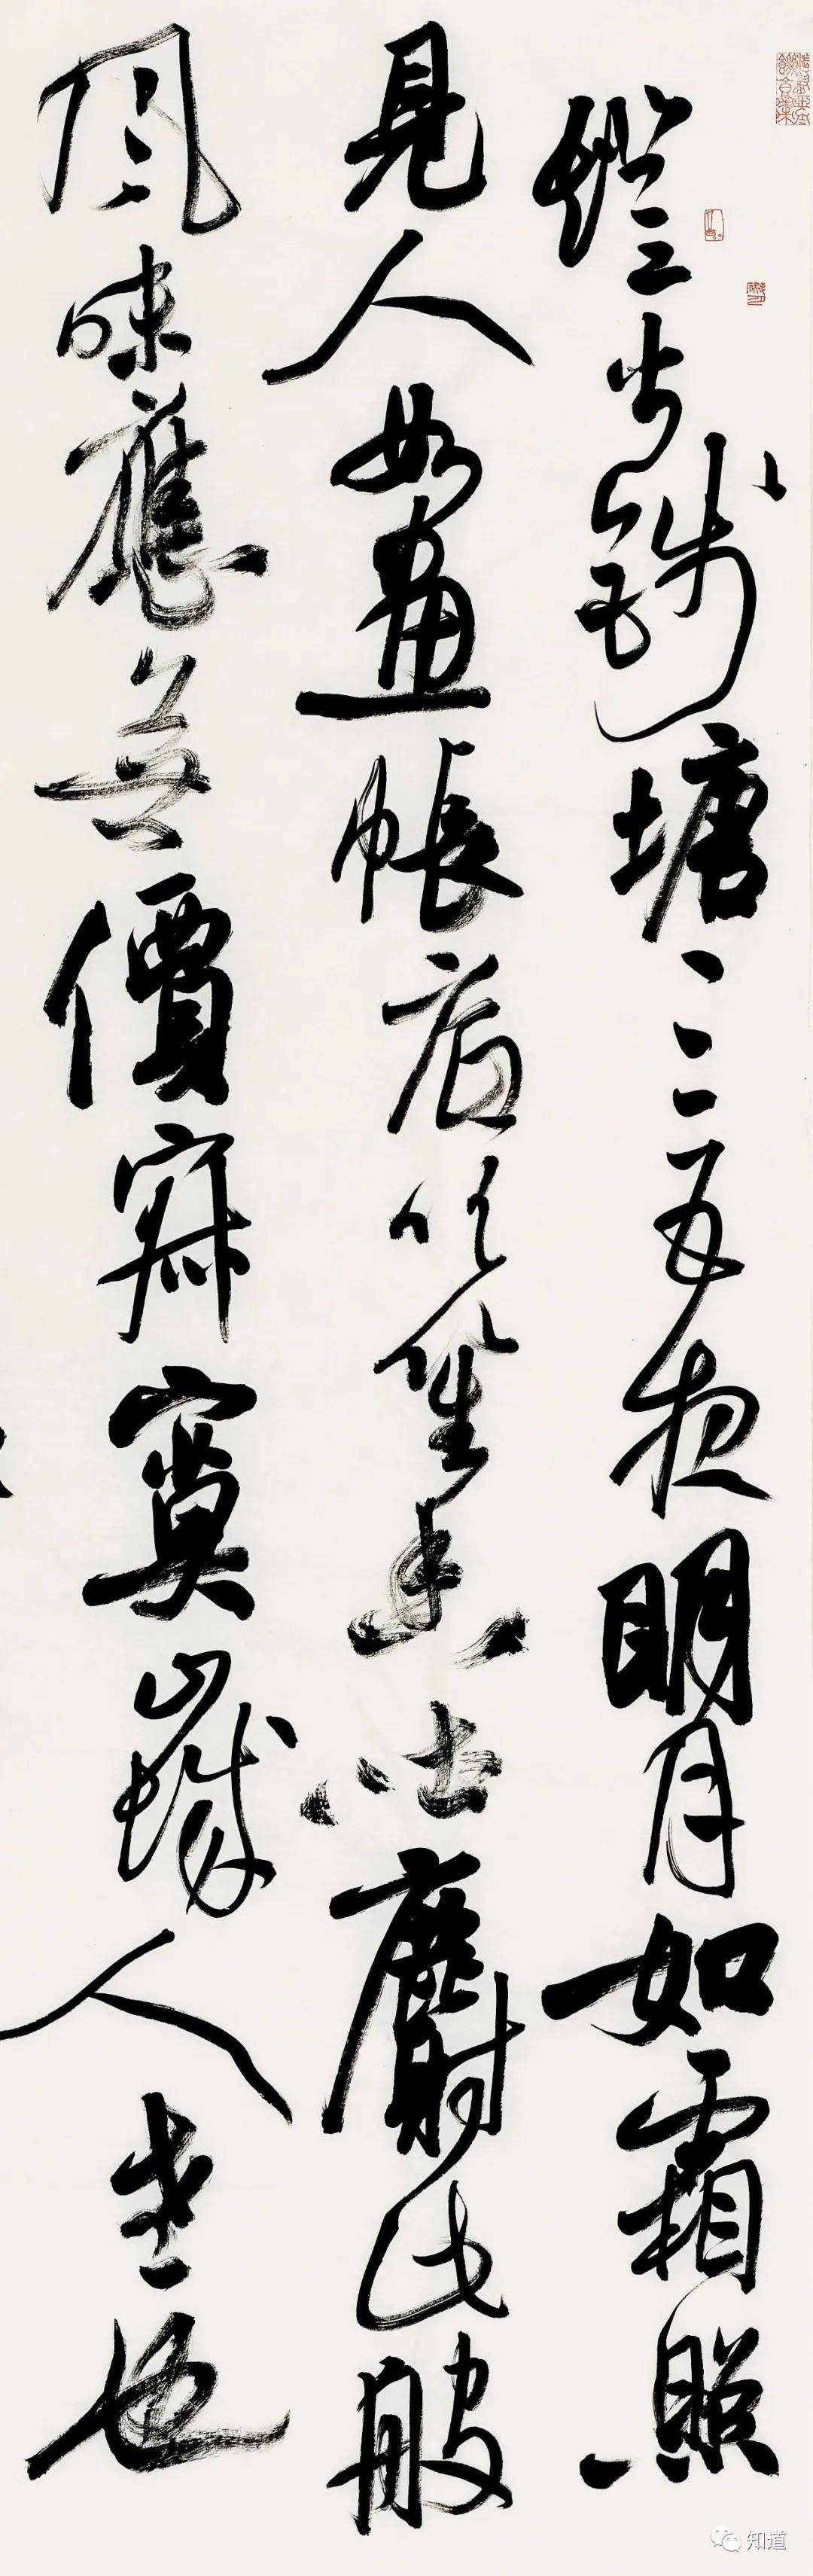 燈火錢塘三五夜明月如霜照
見人如畫帳底吹笙香吐麝此般
風味應無價寂寞山城人老也
知道